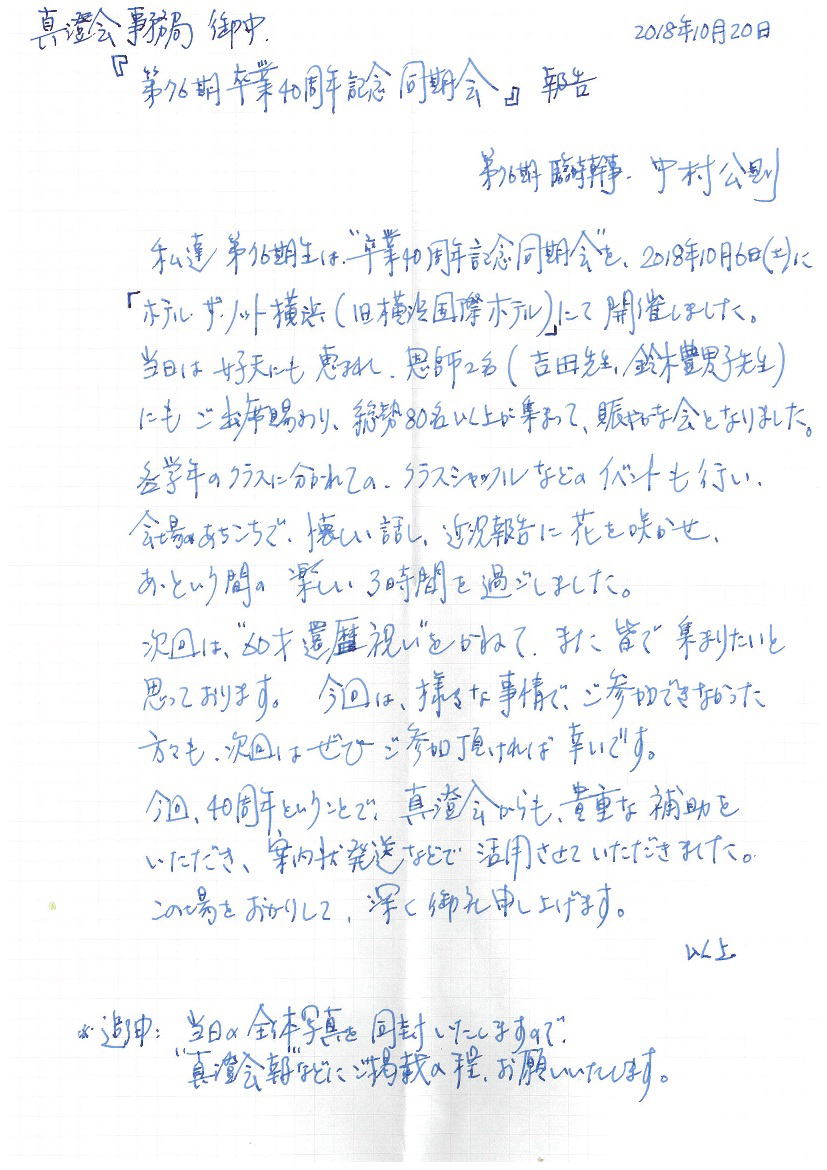 真澄会事務局 御中.
2018年10月20日
『第76期卒業40周年記念同期会』報告
第76期 臨時幹事. 中村公則
私達 第76期生は、"卒業40周年記念同期会"を、2018年10月6日(土)に
「ホテル ザ・ノット横浜(旧横浜国際ホテル)」にて 開催しました。
当日は 好天にも 恵まれ、恩師2名(吉田先生、鈴木豊男子先生)
にも ご出席賜わり、総勢80名以上が集まって、賑やかな会となりました。
各学年のクラスに分かれての、クラスシャッフルなどの イベントも行い、
会場のあちこちで、懐しい話し、近況報告に 花を咲かせ、
あっという間の 楽しい 3時間を 過ごしました。
次回は、"60才 還暦祝い"をかねて、また 皆で 集まりたいと
思っております。 今回は、様々な事情で、ご参加できなかった
方々も、次回はぜひ ご参加頂ければ 幸いです。
今回、40周年ということで、真澄会からも、貴重な 補助を
いただき、案内状発送などで 活用させていただきました。
この場をおかりして、深く御礼申し上げます。
以上
※追申: 当日の全体写真を 同封いたしますので、
"真澄会報"などにご掲載の程、お願いいたします。